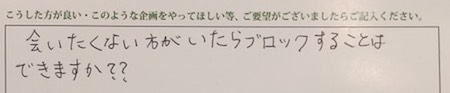 こうした方が良い・このような企画をやってほしい等、ご要望がございましたらご記入ください。
会いたくない方がいたらブロックすることは
できますか??